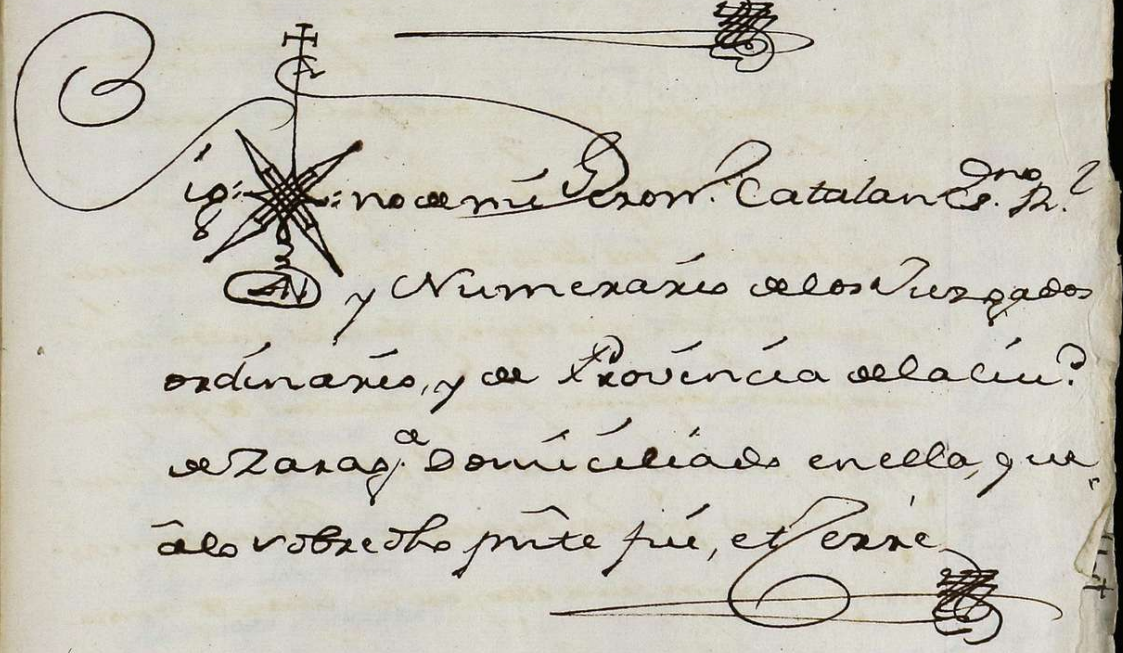 Sig:no de mi Geron.mo Catalan Es.no R.l
y Numerario de los Juzgados
ordinarios, y de Provincia de la ciu.d
de Zarag.a Domiciliado en ella, que
a lo sobredho pnte fui, et Zerre